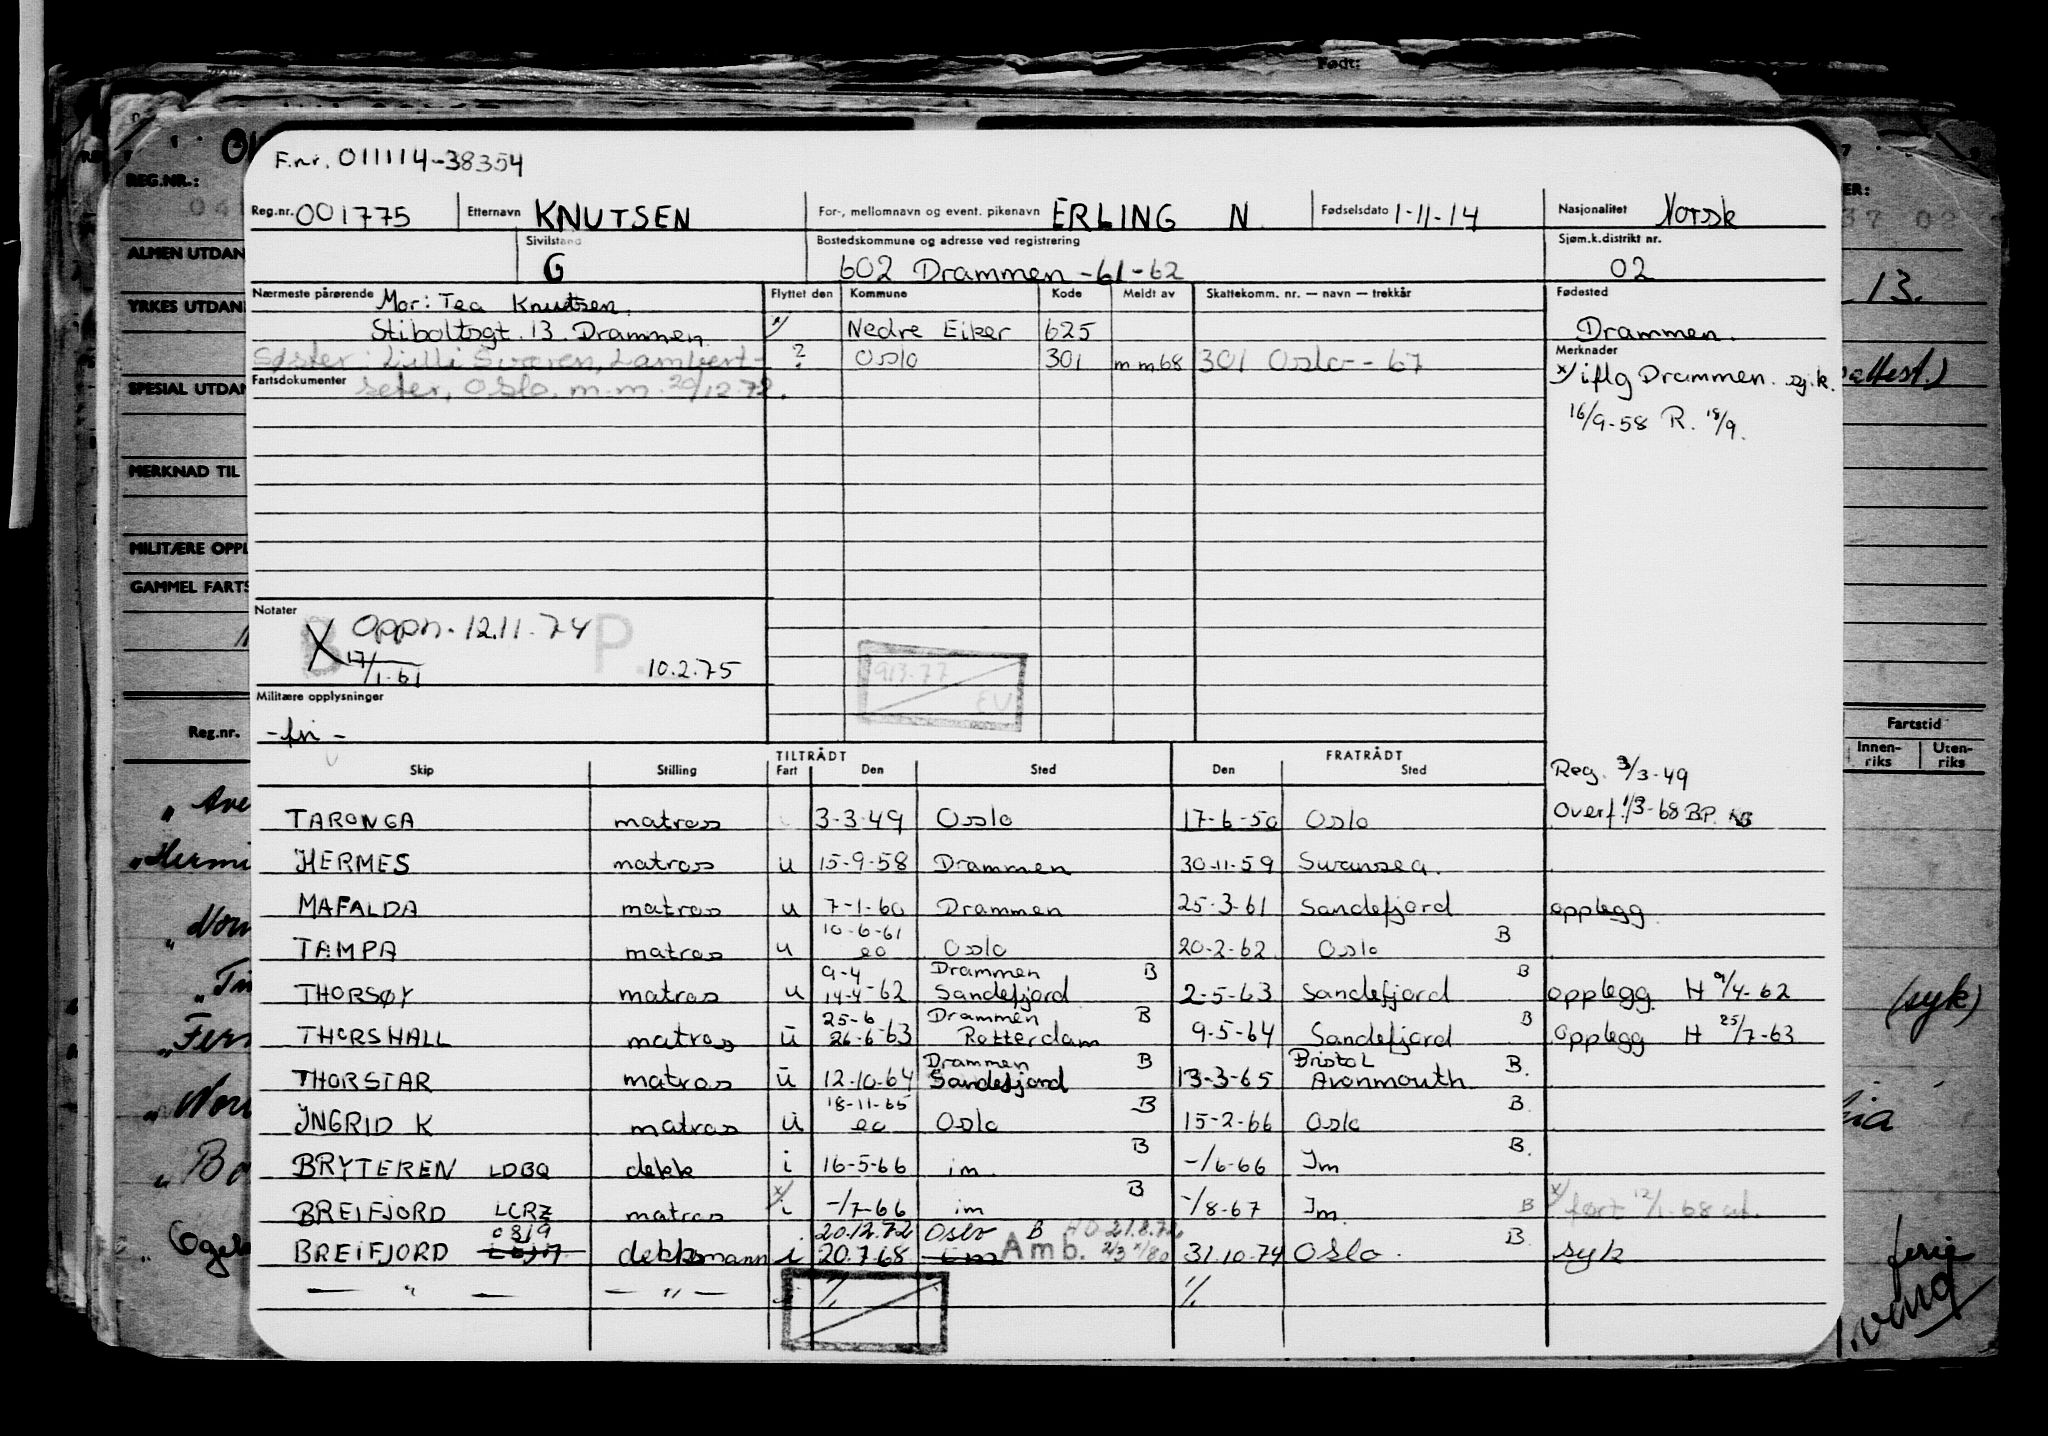 Født:
F.nr. 011114-38354
REG.NR.:
Reg.nr. 001775 Etternavn KNUTSEN For-, mellomnavn og event. pikenavn ERLING N. Fødselsdato 1-11-14 Nasjonalitet Norsk
ALMEN UTDAN
Sivilstand G Bostedskommune og adresse ved registrering 602 Drammen -61-62 Sjøm.k.distrikt nr. 02
13.
YRKES UTDAN
Nærmeste pårørende Mor: Tea Knutsen. Flyttet den Kommune Kode Meldt av Skattekomm. nr. — navn — trekkår Fødested
Stiboltsgt. 13. Drammen x/ Nedre Eiker 625 Drammen.
Søster: Lilli Svaren, Lambert- ? Oslo 301 mm68 301 Oslo - - 67 Merknader
SPESIAL UTDAN
Fartsdokumenter seter, Oslo. m.m. 20/12.72. x/ iflg Drammen. sj.k.
16/9-58 R. 18/9.
MERKNAD TIL
MILITÆRE OPPL
GAMMEL FARTS
Notater
X Oppn. 12.11.74 P.
17/1-61 10.2.75
913-77
EV
Militære opplysninger
- fri -
Reg.nr. Fartstid
Innen-riks Uten-riks
TILTRÅDT FRATRÅDT
Skip Stilling Fart Den Sted Den Sted Reg. 3/3-49
TARONGA matros 3-3-49 Oslo 17-6-50 Oslo Overf. 1/3-68 B.P.
HERMES matros u 15-9-58 Drammen 30-11-59 Swansea.
MAFALDA matros u 7-1-60 Drammen 25-3-61 Sandefjord opplegg
10-6-61
TAMPA matros u eo Oslo 20-2-62 Oslo B
9-4 Drammen B B
THORSØY matros u 14-4-62 Sandefjord 2-5-63 Sandefjord opplegg H 9/4-62
(syk)
25-6 Drammen B B
THORSHALL matros u 26-6-63 Rotterdam 9-5-64 Sandefjord opplegg H 25/7-63
Drammen B Bristol B.
THORSTAR matros u 12-10-64 Sandefjord 13-3-65 Avonmouth
18-11-65 B B.
INGRID K matros u eo Oslo 15-2-66 Oslo
BRYTEREN LDBQ dekk i 16-5-66 im. B -/6-66 Im B.
BREIFJORD LCRZ matros x/ i -/7-66 im B -/8-67 Im. B x/ ført 12/1-68
0819 20.12.72 Oslo B
BREIFJORD dekksmann i 20.7.68 Im Amb. 31.10.74 Oslo. B. syk
— " — — " — 1/1. 1/1.
ferie